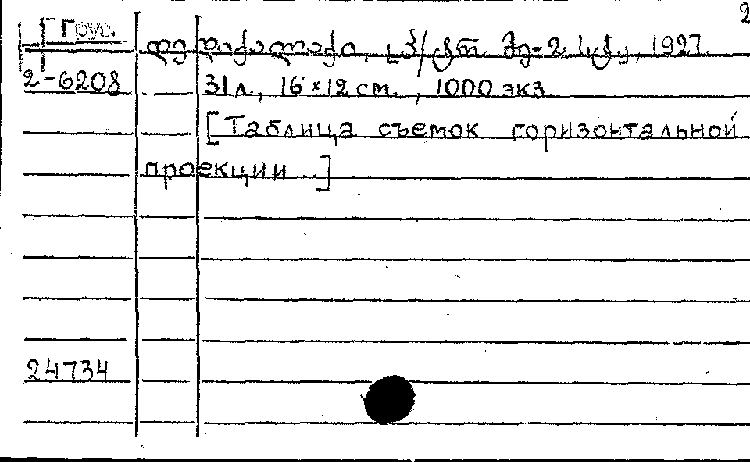 2
Груз.
დედაქალაქი, 1927.
2-6208 31 л., 16×12 см., 1000 экз.
[Таблица съемок горизонтальной
проекции ..]
24734